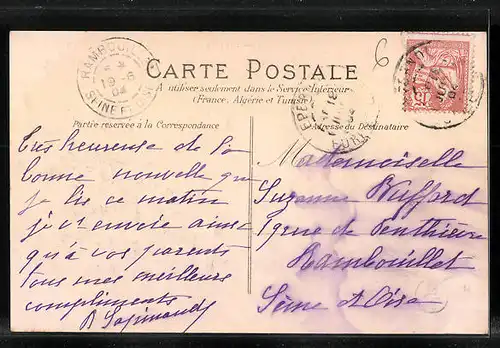 6
RAMBOUILLET
19
04
SEINE ET OISE
CARTE POSTALE
A utiliser seulement dans le Service Intérieur
(France, Algérie et Tunisie)
EPERNON
18
04
EURE
Partie réservée à la Correspondance
Adresse du Destinataire
Très heureuse de la
bonne nouvelle que
je lis ce matin
je vs envoie ainsi
qu'à vos parents
tous mes meilleurs
compliments
Mademoiselle
Suzanne
rue de Penthièvre
Rambouillet
Seine et Oise